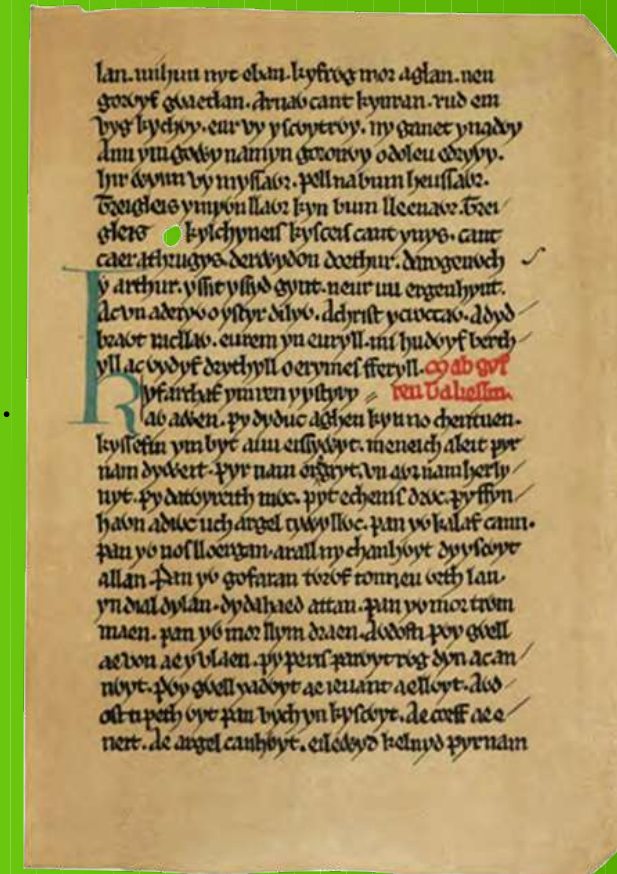 lan. mihun nyt eban. kyfrỽg mor a glan. neu
gorỽyf gỽaetlan. arnaỽ cant kynran. rud em
vyg kychỽy. eur vy yscỽytrỽy. ny ganet yn adỽy
a uu ym goỽy namyn goronỽy o doleu edryỽy.
hir ỽynn vy myssaỽr. pell na bum heussaỽr.
treigleis y myỽn llaỽr kyn bum lleenaỽr. trei
gleis kylchyneis kysceis cant ynys. cant
caer a thrugys. derỽydon doethur. darogenỽch
y arthur. yssit yssyd gynt. neur mi ergenhynt.
Ac vn aderyỽ o ystyr dilyỽ. A christ y croccaỽ. a dyd
braỽt racllaỽ. eurem yn euryll. mi hudỽyf berth
yll ac vydyf drythyll o erymes fferyll. mab gyf
Kyfarchaf ym ren y ystyry reu taliessin.
aỽ aỽen. py dyduc aghen kyn no cheritUen.
kyssefin ym byt a uu eissyỽyt. meneich aleit pyr
nam dyỽeit. pyr nam eisgyt. vn aỽr nam herly
nyt. py datỽyreith mỽc. pyt echenis drỽc. py ffyn
haỽn a diỽc uch argel tyỽyllỽc. pan yỽ kalaf cann.
pan yỽ nos lloergan. arall ny chanhỽyt dy yscỽyt
allan. Pan yỽ gofaran tỽrỽf tonneu ỽrth lan.
yn dial dylan. dydahaed attan. pan yỽ mor trỽm
maen. pan yỽ mor llym draen. Aỽdosti pỽy gỽell
ae von ae y vlaen. py peris parỽyt rỽg dyn ac an
nỽyt. pỽy gỽell y adỽyt ae ieuanc ae llỽyt. Aỽd
osti peth ỽyt pan vych yn kyscỽyt. Ae corff ae e
neit. Ae argel canhỽyt. eilewyd keluyd pyr nam